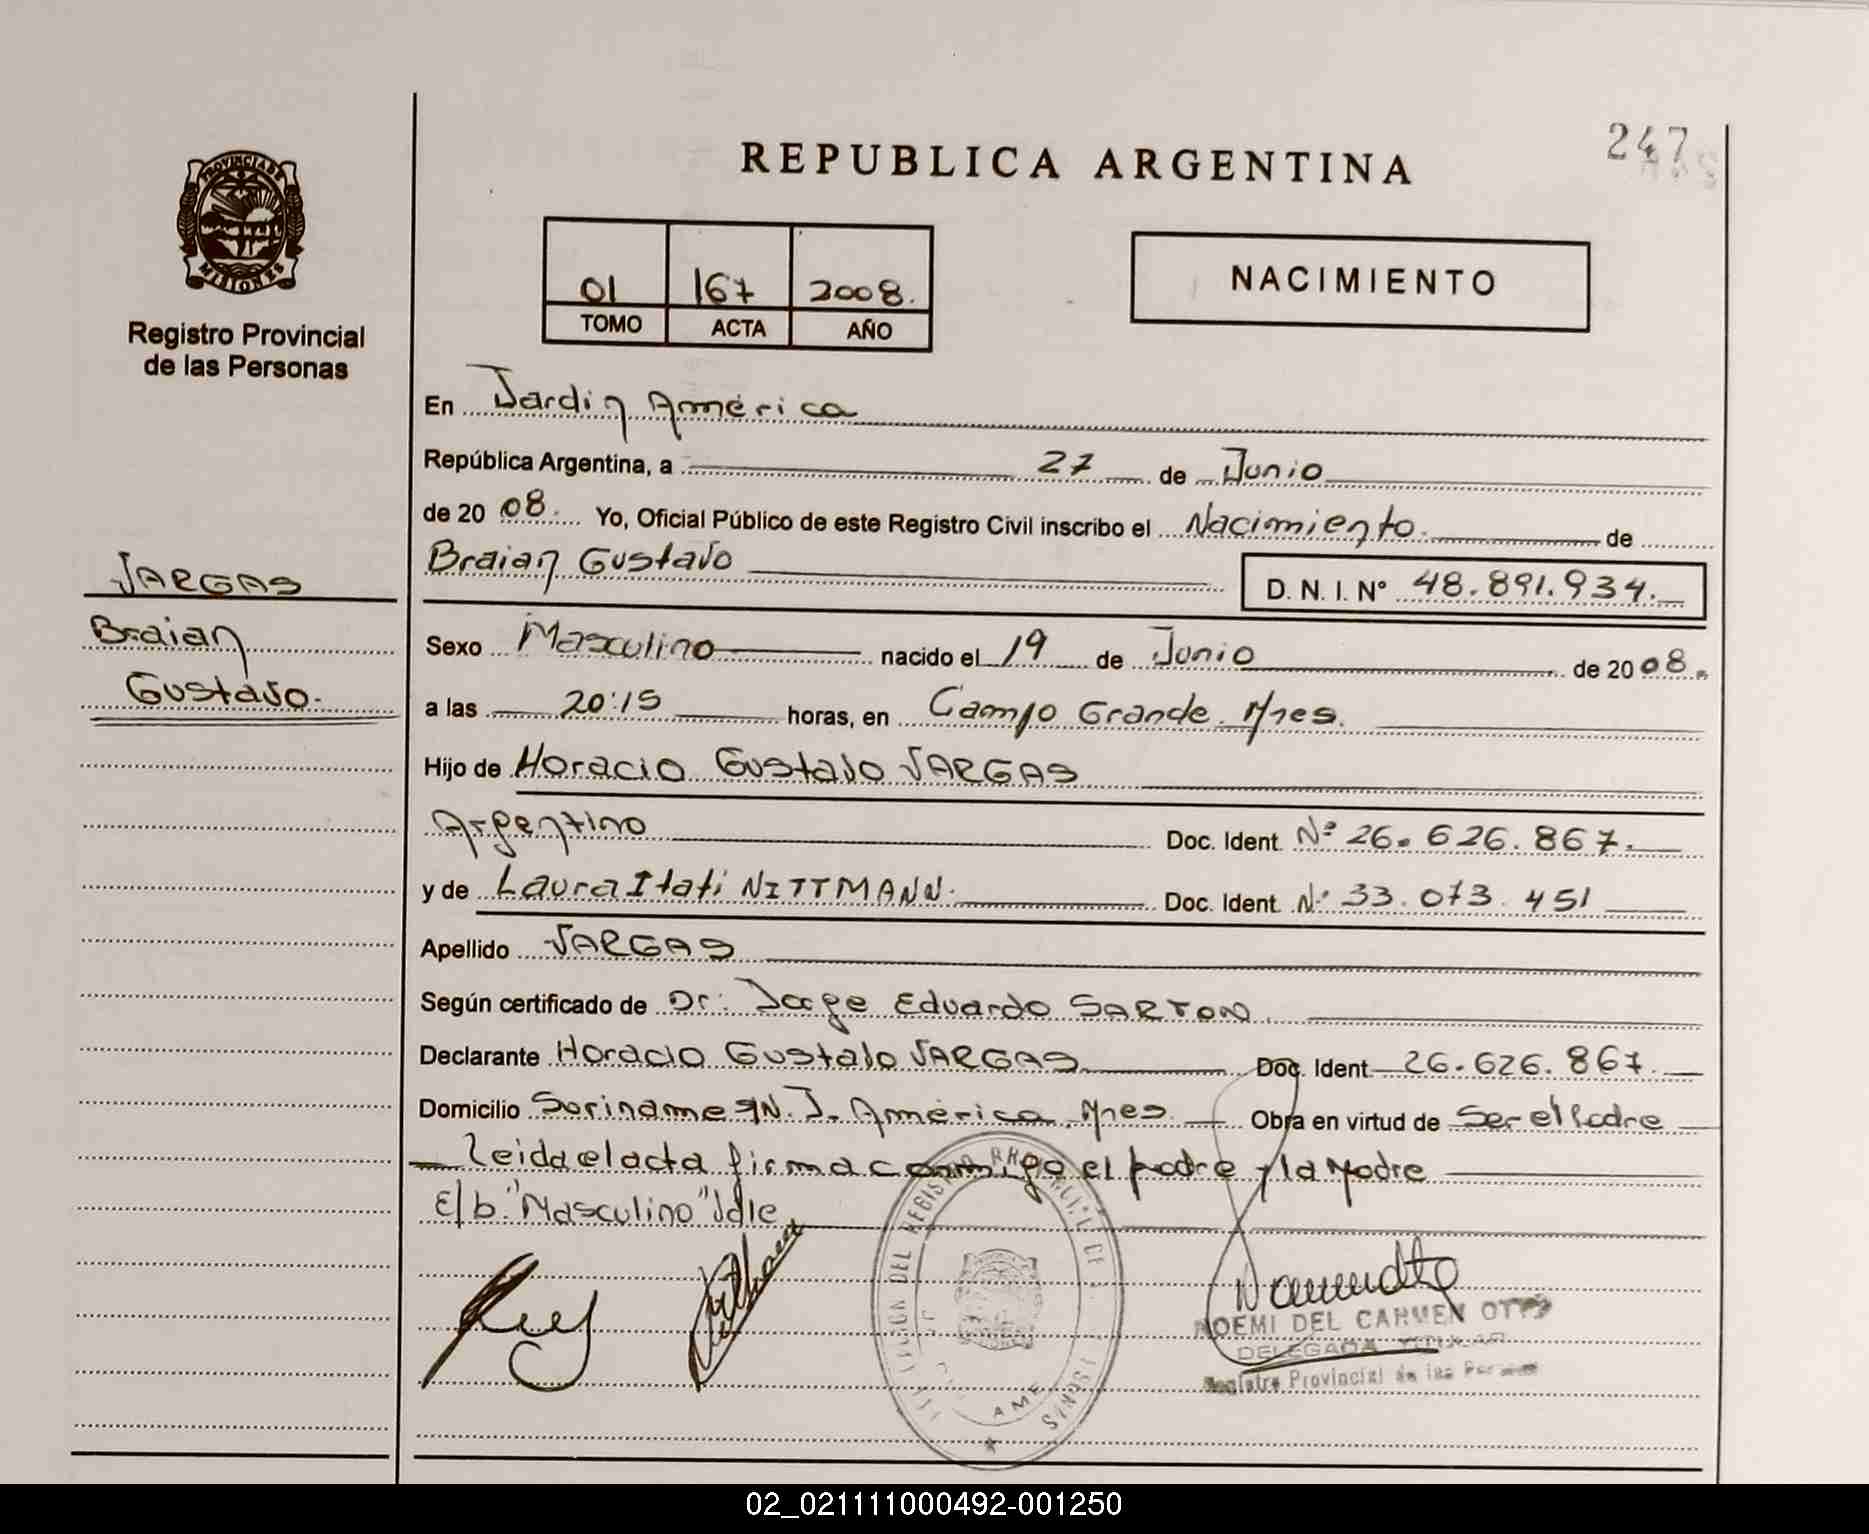 247
REPUBLICA ARGENTINA
PROVINCIA DE
MISIONES
Registro Provincial
de las Personas
01 167 2008.
TOMO ACTA AÑO
NACIMIENTO
En Jardin América
República Argentina, a 27 de Junio
de 20 08. Yo, Oficial Público de este Registro Civil inscribo el Nacimiento de
Braian Gustavo D. N. I. Nº 48.891.934.
VARGAS
Braian
Gustavo.
Sexo Masculino nacido el 19 de Junio de 20 08.
a las 20:15 horas, en Campo Grande. Mnes.
Hijo de Horacio Gustavo VARGAS
Argentino Doc. Ident. Nº 26.626.867.
y de Laura Itati NITTMANN. Doc. Ident. Nº 33.073.451
Apellido VARGAS
Según certificado de Dr. Jorge Eduardo SARTON.
Declarante Horacio Gustavo VARGAS Doc. Ident. 26.626.867.
Domicilio Suriname S/N. J. América. Mnes. Obra en virtud de Ser el Padre
Leida el acta firma conmigo el padre y la Madre
E/b: "Masculino" Vale
NOEMI DEL CARMEN
DELEGADA TITULAR
Registro Provincial de las
02_021111000492-001250